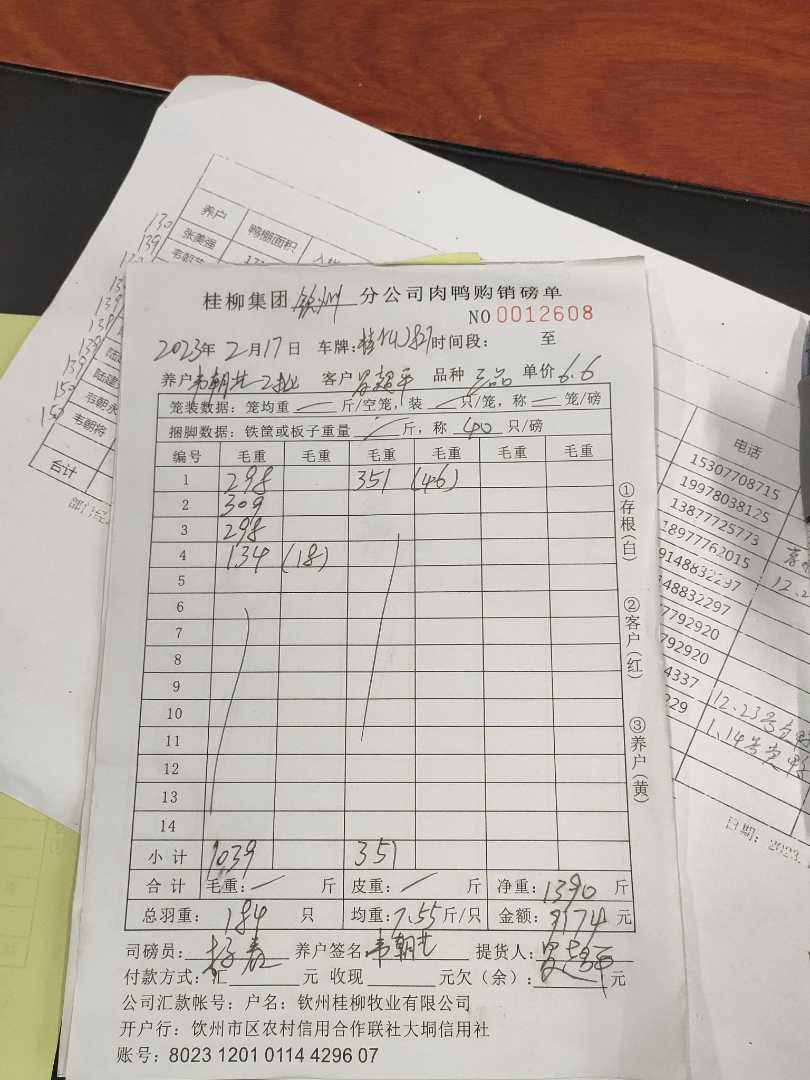 养户 鸭棚面积
130 张美强
139
139
139
139 陆建
150 韦朝永
150 韦朝将
合计
电话
15307708715
19978038125
13877725773
18977762015
9148832237
48832297
7792920
792920
4337
229
12.23号
1.14号
日期：2023.
桂柳集团 钦州 分公司肉鸭购销磅单
NO 0012608
2023年 2月17日 车牌： 时间段： 至
养户 韦朝 客户 平 品种 单价 6.6
笼装数据：笼均重 — 斤/空笼，装 — 只/笼，称 — 笼/磅
捆脚数据：铁筐或板子重量 — 斤，称 40 只/磅
编号 毛重 毛重 毛重 毛重 毛重 毛重
1 298 351 (46)
2 309
3 298
4 134 (18)
5
6
7
8
9
10
11
12
13
14
小计 1039 351
合计 毛重： — 斤 皮重： — 斤 净重：1390 斤
总羽重： 184 只 均重：7.55斤/只 金额：9174 元
司磅员： 养户签名 韦朝 提货人： 平
付款方式：汇 元 收现 元欠（余）： 元
公司汇款帐号：户名：钦州桂柳牧业有限公司
开户行：钦州市区农村信用合作联社大垌信用社
账号：8023 1201 0114 4296 07
①存根(白) ②客户(红) ③养户(黄)